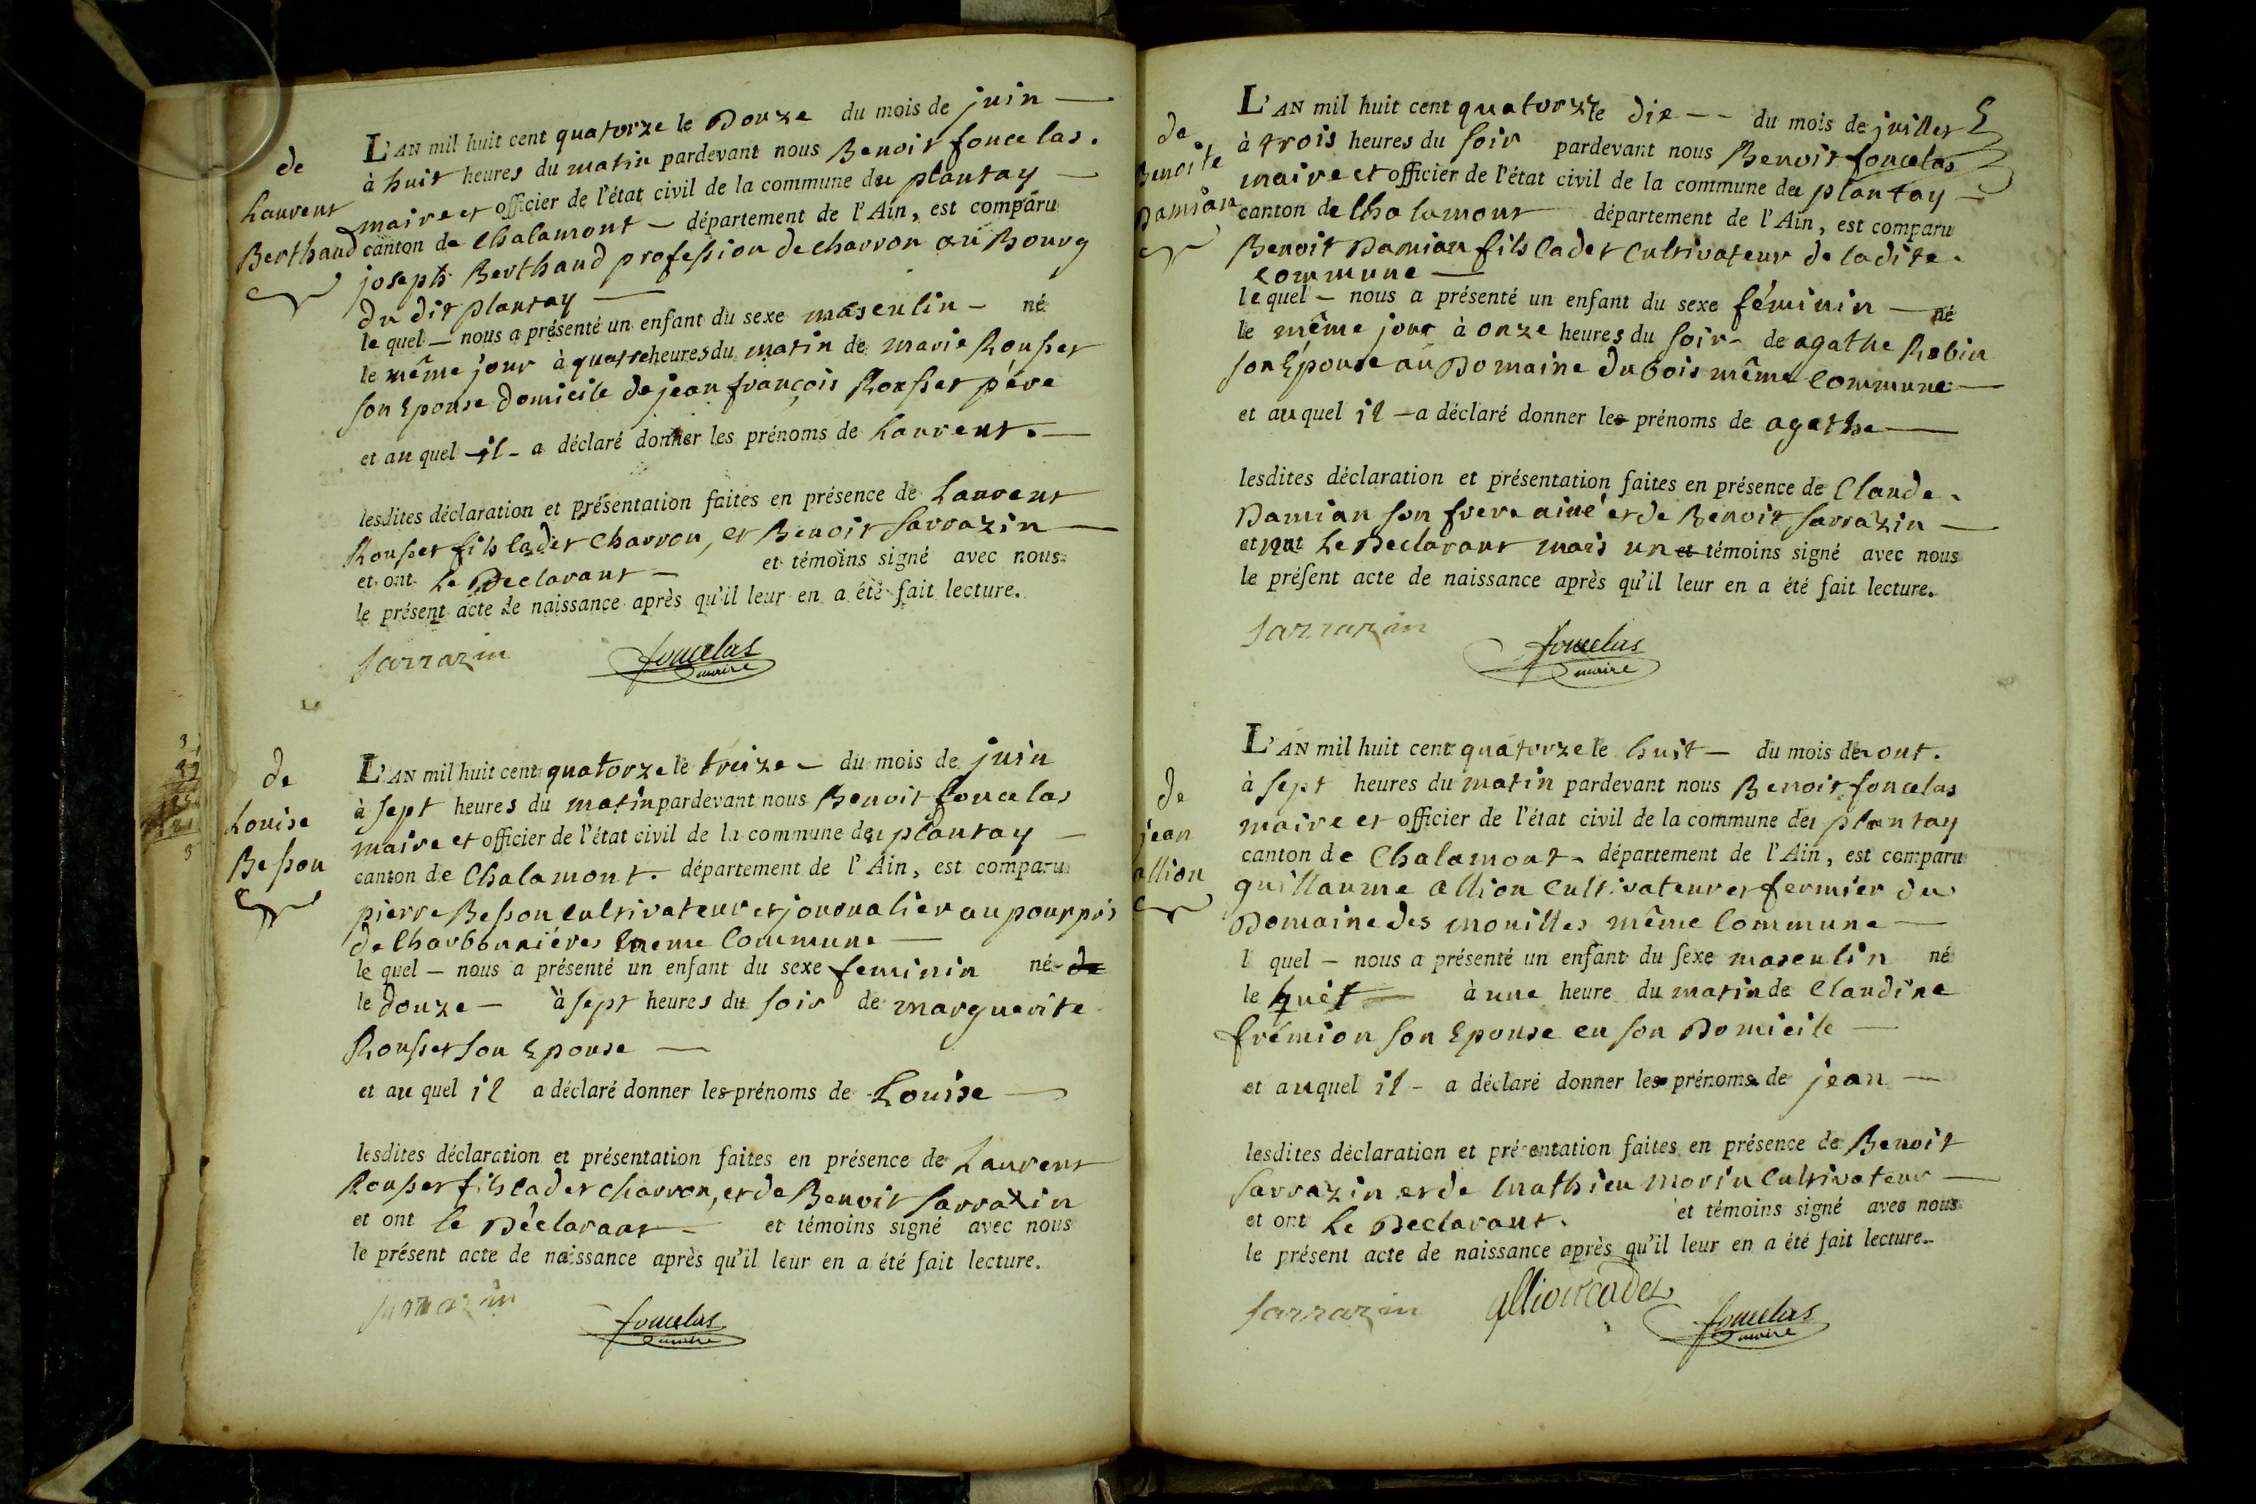 de
Laurent
Berthaud
L'AN mil huit cent quatorze le Douze du mois de juin —
à huit heures du matin pardevant nous Benoit foncelas.
maire et officier de l'état civil de la commune du plantay —
canton de Chalamont — département de l'Ain, est comparu
joseph Berthaud profession de charron au Bourg
du dit plantay —
le quel — nous a présenté un enfant du sexe masculin — né
le même jour à quatre heures du matin de marie Rousset
son Epouse Domicile de jean françois Rousset père
et au quel il - a déclaré donner les prénoms de Laurent. —
lesdites déclaration et présentation faites en présence de Laurent
Rousset fils cadet Charron, et Benoit Sarrazin —
et ont Le Declarant — et témoins signé avec nous
le présent acte de naissance après qu'il leur en a été fait lecture.
Sarrazin foncelas
maire
de
Louise
Besson
L'AN mil huit cent quatorze le treize — du mois de juin
à sept heures du matin pardevant nous Benoit foncelas
maire et officier de l'état civil de la commune du plantay —
canton de Chalamont. département de l'Ain, est comparu
pierre Besson Cultivateur et journalier au pourpris
de Charbonniéres même Commune —
le quel — nous a présenté un enfant du sexe feminin né
le douze — à sept heures du soir de marguerite
Rousset son Epouse —
et au quel il a déclaré donner les prénoms de Louise —
lesdites déclaration et présentation faites en présence de Laurent
Rousset fils cadet charron, et de Benoit Sarrazin
et ont le Déclarant — et témoins signé avec nous
le présent acte de naissance après qu'il leur en a été fait lecture.
Sarrazin foncelas
maire
de
Benoite
Damian
L'AN mil huit cent quatorze le dix -- du mois de juillet
à trois heures du soir pardevant nous Benoit foncelas
maire et officier de l'état civil de la commune du plantay —
canton de Chalamont département de l'Ain, est comparu
Benoit Damian fils Cadet Cultivateur de la dite.
Commune —
le quel — nous a présenté un enfant du sexe féminin — né
le même jour à onze heures du soir - de agathe Robin
son Epouse au Domaine Dubois même Commune —
et au quel il — a déclaré donner les prénoms de agathe —
lesdites déclaration et présentation faites en présence de Claude.
Damian son frere ainé et de Benoit Sarrazin —
et ont Le Declarant mais un et témoins signé avec nous
le présent acte de naissance après qu'il leur en a été fait lecture.
Sarrazin foncelas
maire
de
jean
allion
L'AN mil huit cent quatorze le huit — du mois de aout.
à sept heures du matin pardevant nous Benoit foncelas
maire et officier de l'état civil de la commune du plantay
canton de Chalamont - département de l'Ain, est comparu
guillaume allion Cultivateur et fermier du
Domaine des mouilles même Commune —
l quel — nous a présenté un enfant du sexe masculin né
le huit — à une heure du matin de Claudine
frémion son Epouse en son Domicile —
et au quel il - a déclaré donner les prénoms de jean —
lesdites déclaration et présentation faites en présence de Benoit
Sarrazin et de Mathieu Morin Cultivateur —
et ont Le Declarant. et témoins signé avec nous
le présent acte de naissance après qu'il leur en a été fait lecture.
Sarrazin allion cadet foncelas
maire